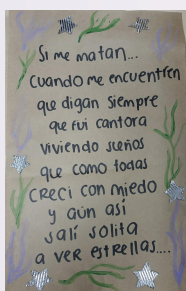 Si me matan...
Cuando me encuentren
que digan siempre
que fui cantora
viviendo sueños
que como todas
CRECI CON MIEDO
y aún así
salí solita
a ver estrellas....